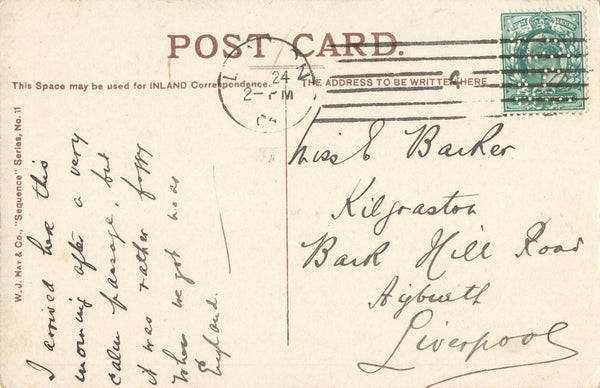 POST CARD.
This Space may be used for INLAND Correspondence.
THE ADDRESS TO BE WRITTEN HERE
24
2- PM
W. J. MAY & Co., "Sequence" Series, No. 11
I arrived here this
morning after a very
calm passage, but
it was rather foggy
when we got near
England.
Miss E Barker
Kilgraston
Bark Hill Road
Aigburth
Liverpool